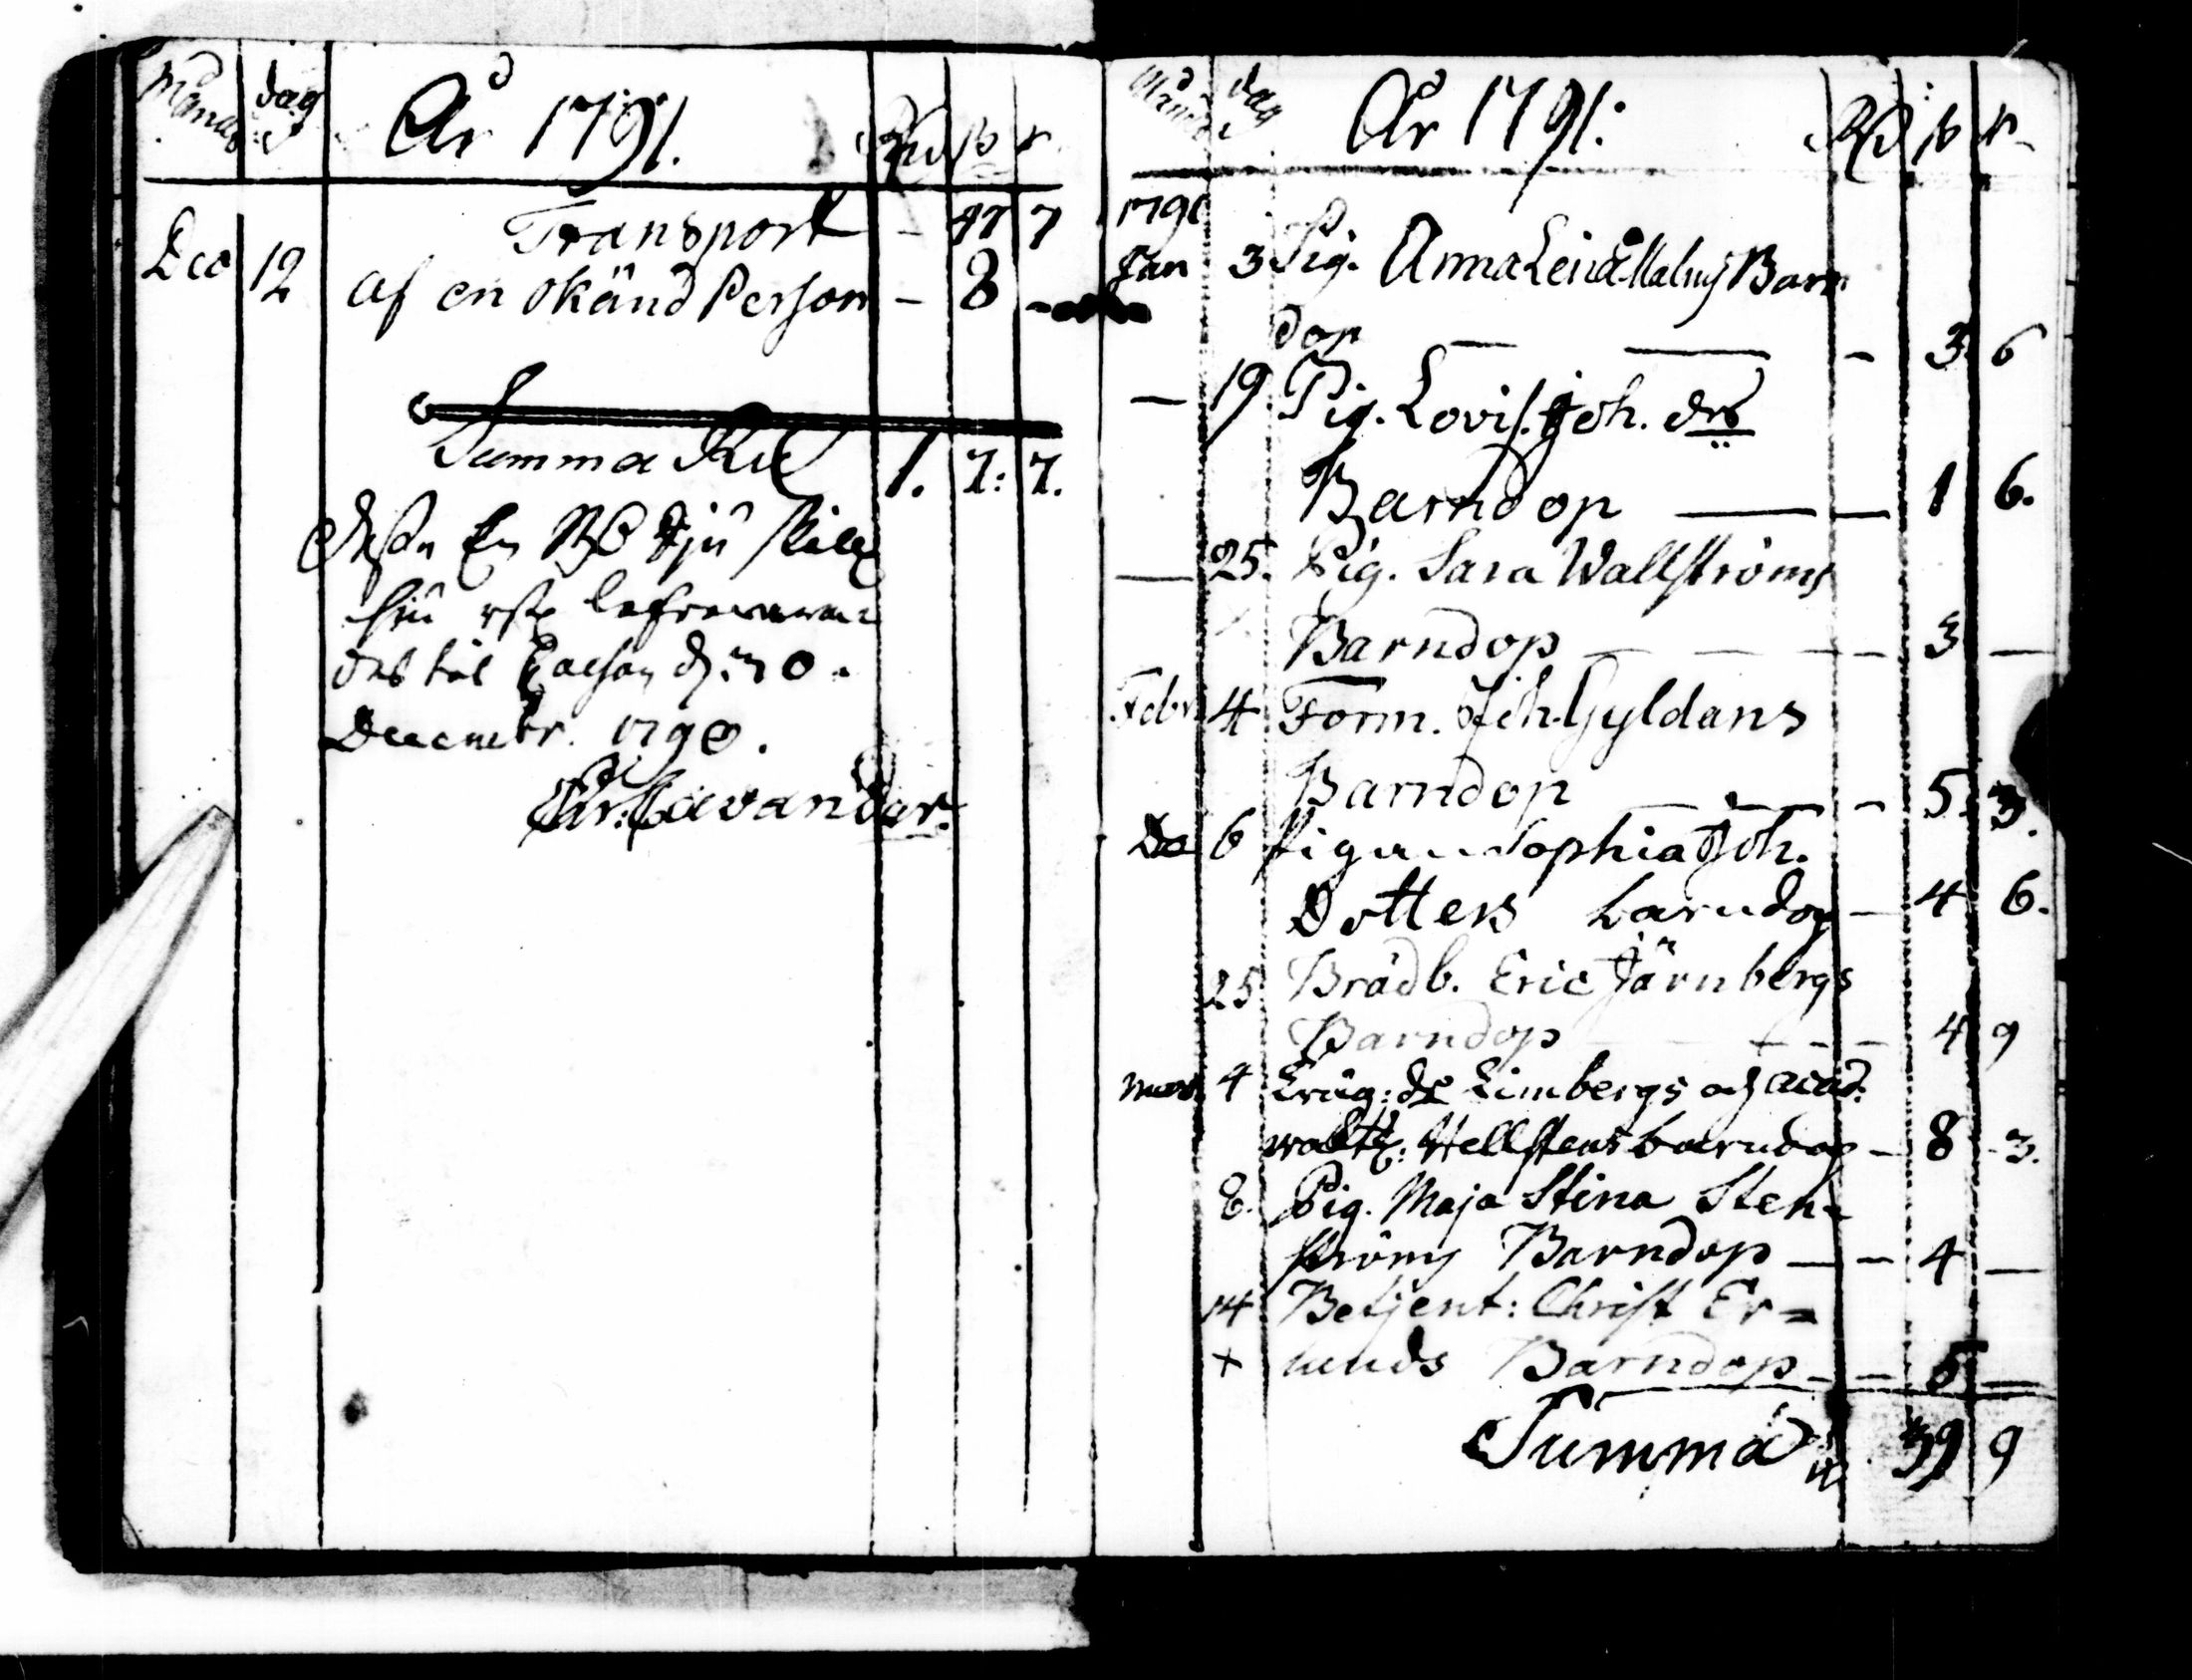 Månad dag År 1791. Rd ß r
Transport - 47 7
Dec 12 af en okänd Person - 8 -
Summa Rd 1. 7: 7.
En Rd sju skill
sju rst
December. 1790.
Cavander.
Månad dag År 1791: Rd ß r
1790
Jan 3 Pig. Anna Lena Malms Barn
dop - 3. 6
— 19 Pig. Lovis. Joh. drs
Barndop — 1 6.
— 25. Pig. Sara Wallströms
Barndop - 3 —
Febr 4 Form. Joh. Gyldans
Barndop - 5. 3.
Do 6 Pigan Sophia Joh.
Dotters barndop - 4 6.
25 Brädb. Eric Järnbergs
Barndop - 4 9
Mars 4 Limbergs och
Hellstens barndop - 8 - 3.
8. Pig. Maja Stina Sten-
ströms Barndop — 4 —
14 Betjent: Christ Er=
+ lunds Barndop - 5 —
Summa 39 9